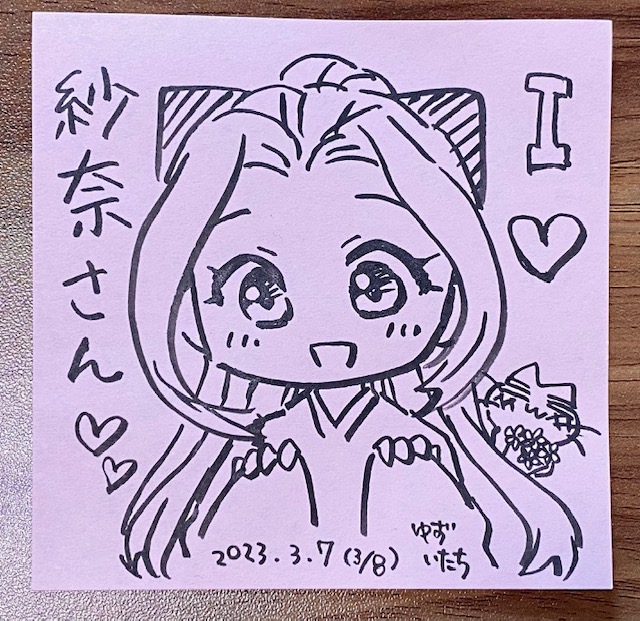 I♡
紗奈さん♡♡
2023.3.7(3/8)
ゆず
いたち